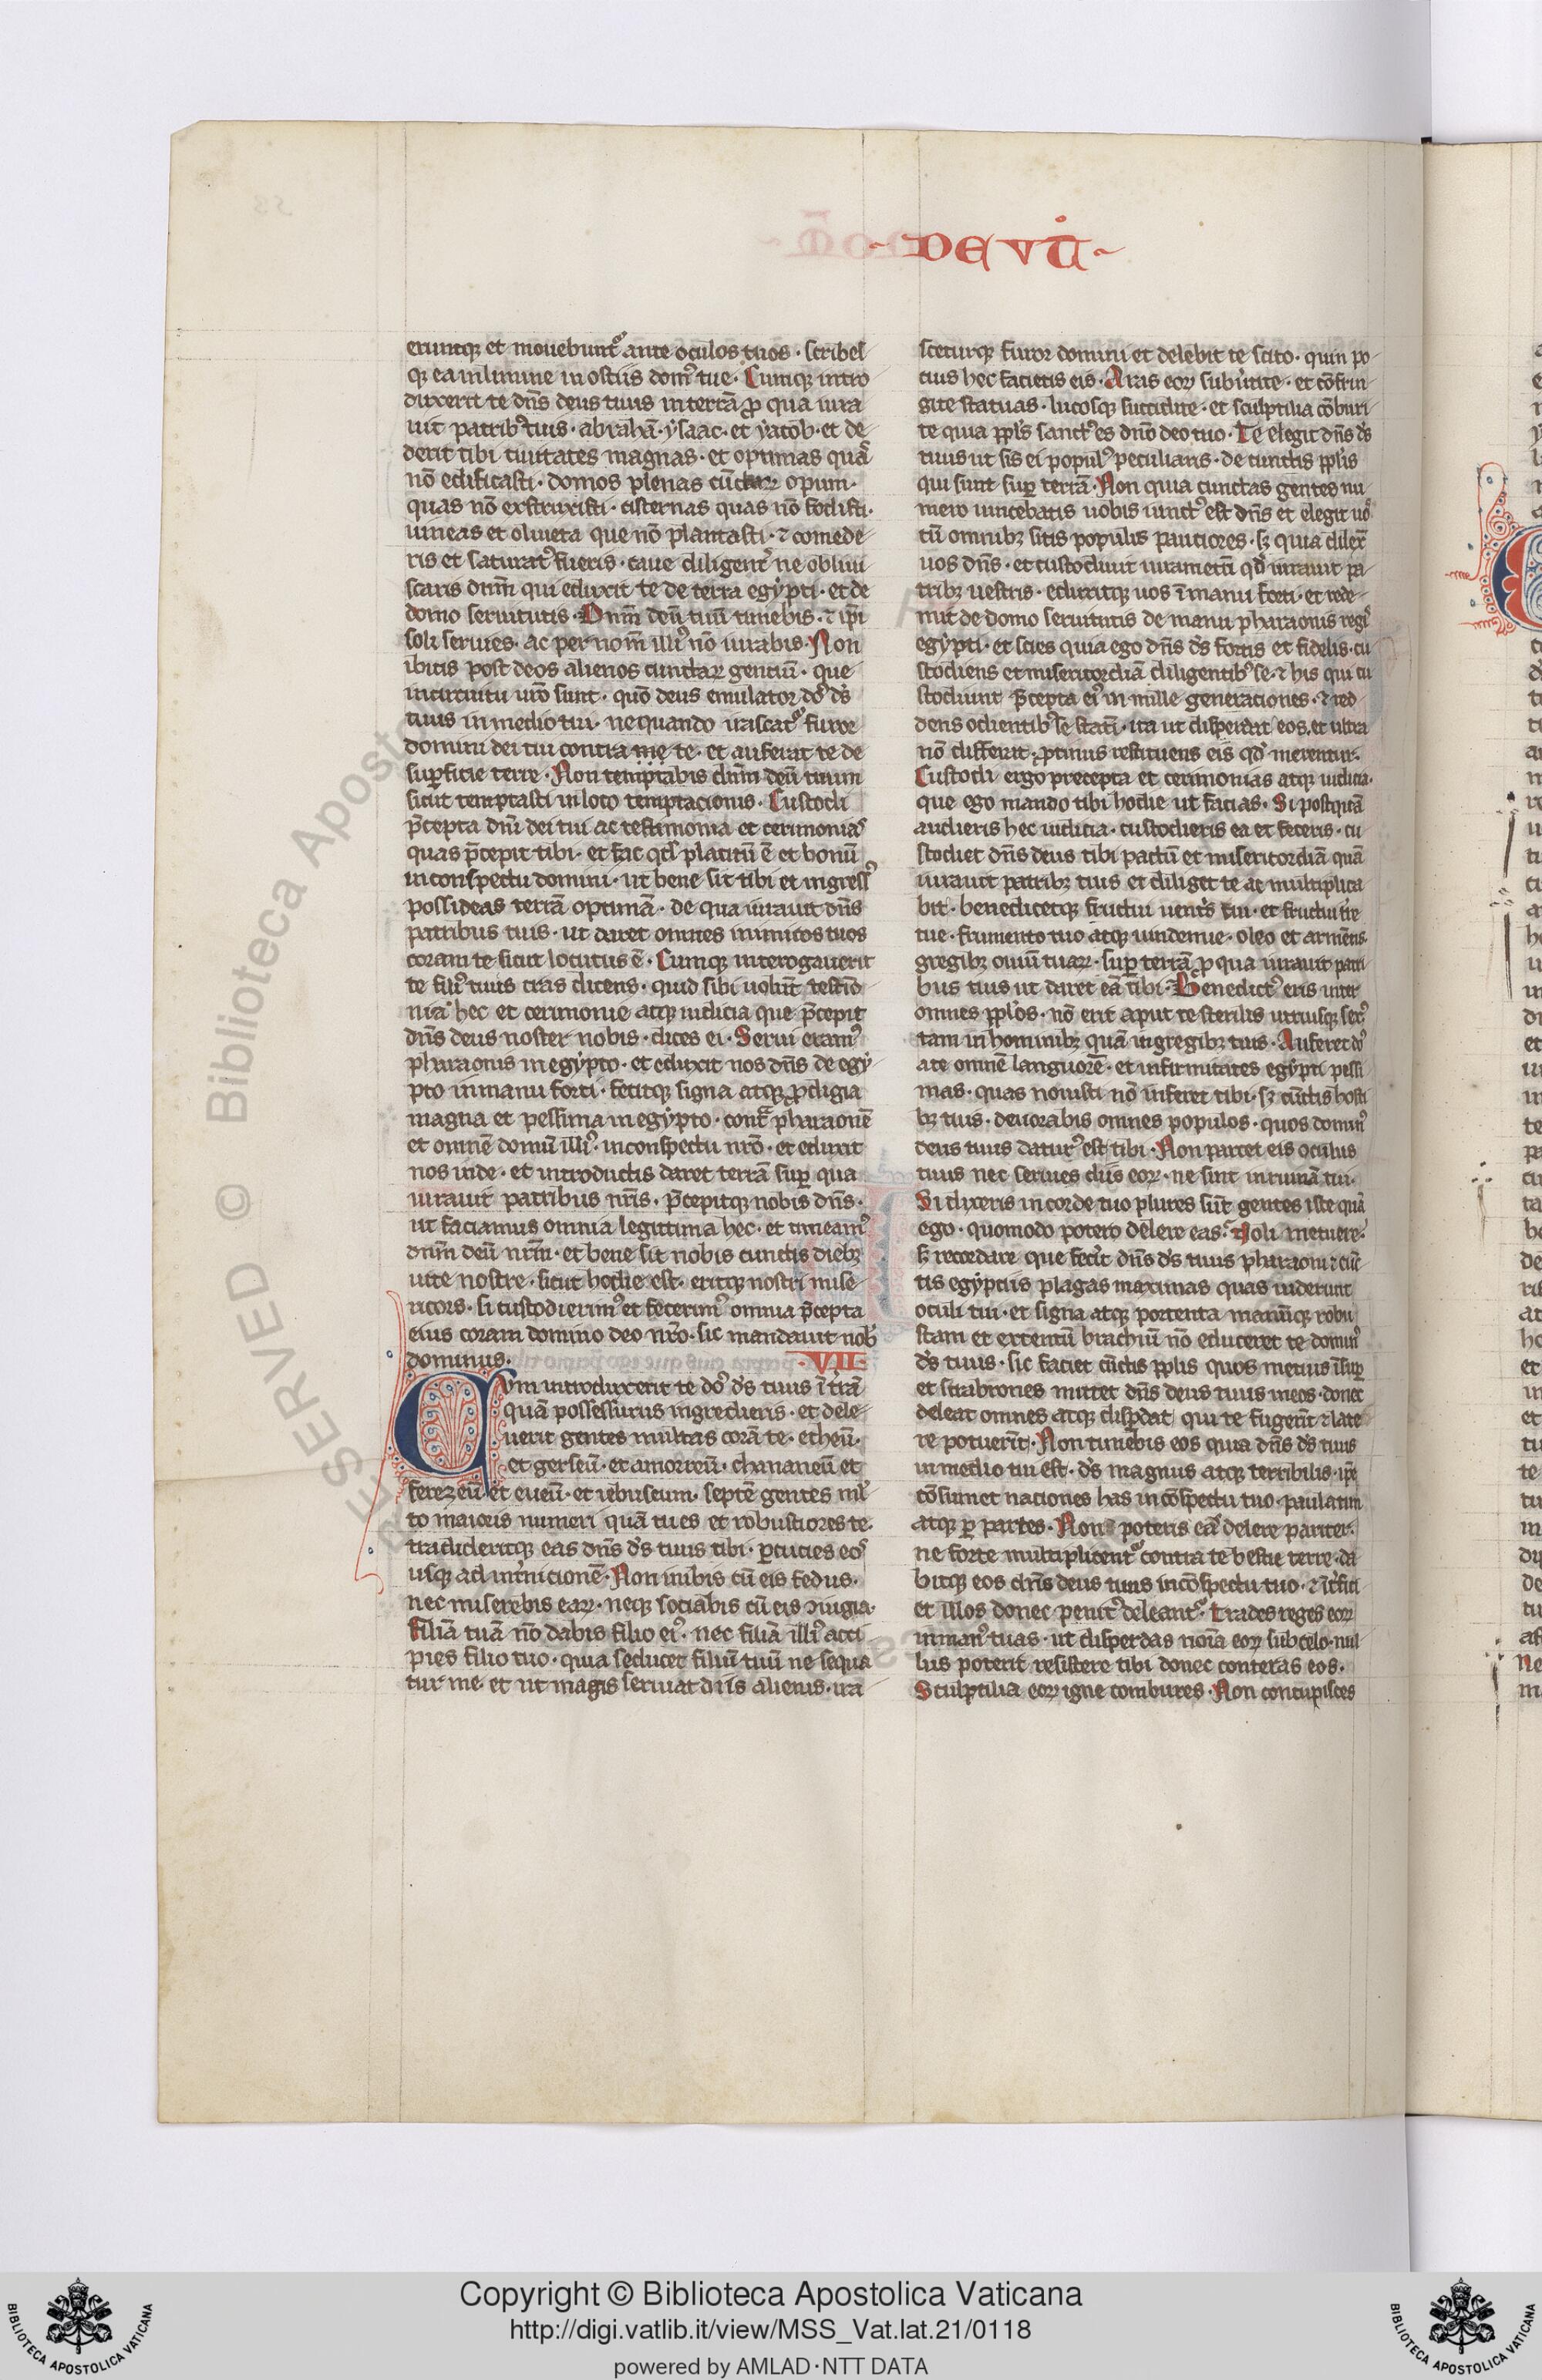 DE VT̄
eruntq; et mouebunt᷑ ante oculos tuos · scribes
q; ea in limine in ostiis domꝰ tue · Cumq; intro
duxerit te dn̄s deus tuus in terrā ꝓ qua iura
uit patribꝰ tuis · abrahā · ysaac · et yacob · et de
derit tibi ciuitates magnas · et optimas quas
nō edificasti · domos plenas cūctarꝝ opum ·
quas nō exstruxisti · cisternas quas nō fodisti ·
uineas et oliueta que nō plantasti · ⁊ comede
ris et saturatꝰ fueris · caue diligent᷑ ne obliui
scaris dn̄m qui eduxit te de terra egypti · et de
domo seruitutis · Dn̄m deū tuū timebis · ⁊ ip̄i
soli seruies · ac per nom̄ illiꝰ nō iurabis · Non
ibitis post deos alienos cunctarꝝ gentiū · que
in circuitu ur̄o sunt · quō deus emulator dn̄s ds̄
tuus in medio tui · ne quando irascat᷑ furor
domini dei tui contra me te · et auferat te de
suꝑficie terre · Non temptabis dn̄m deū tuum
sicut temptasti in loco temptacionis · Custodi
p̄cepta dn̄i dei tui ac testimonia et cerimonias
quas p̄cepit tibi · et fac qd̄ placitū ē et bonū
in conspectu domini · ut bene sit tibi et ingressꝰ
possideas terrā optimā · de qua iurauit dn̄s
patribus tuis · ut daret omnes inimicos tuos
coram te sicut locutus ē · Cumq; interogauerit
te filiꝰ tuus cras dicens · quid sibi uolūt testīo
nia hec et cerimonie atq; iudicia que p̄cepit
dn̄s deus noster nobis · dices ei · Serui eramꝰ
pharaonis in egypto · et eduxit nos dn̄s de egy
pto in manu forti · fecitq; signa atq; ꝓdigia
magna et pessima in egypto · cont̄ pharaonē
et omnē domū illiꝰ · in conspectu nr̄o · et eduxit
nos inde · et introductis daret terrā suꝑ qua
iurauit patribus nr̄is · p̄cepitq; nobis dn̄s ·
ut faciamus omnia legittima hec · et timeamꝰ
dn̄m deū nr̄m · et bene sit nobis cunctis dieb;
uite nostre · sicut hodie est · eritq; nostri mise
ricors · si custodierimꝰ et fecerimꝰ omnia p̄cepta
eius coram domino deo nr̄o · sic mandauit nob̄
dominus · VII
Cum introduxerit te dn̄s ds̄ tuus ī t̄rā
quā possessurus ingredieris · et dele
uerit gentes multas corā te · etheū ·
et gerseū · et amorreū · chananeū et
ferezeū · et eueū · et iebuseum · septē gentes ml̄
to maioris numeri quā tu es et robustiores te ·
tradideritq; eas dn̄s ds̄ tuus tibi · ꝑcucies eos
usq; ad int̄nicionē · Non inibis cū eis fedus ·
nec miserebis earꝝ · neq; sociabis cū eis ꝯiugia ·
Filiā tuā nō dabis filio eiꝰ · nec filiā illiꝰ acci
pies filio tuo · quia seducet filiū tuū ne sequa
tur me · et ut magis seruiat diis alienis · ira
sceturq; furor domini et delebit te scito · quin po
cius hec facietis eis · Aras eorꝝ subūtite · et cōfrin
gite statuas · lucosq; succidite · et sculptilia cōburi
te quia ppl̄s sanctꝰ es dn̄o deo tuo · Te elegit dn̄s ds̄
tuus ut sis ei populꝰ peculiaris · de cunctis ppl̄is
qui sunt suꝑ terrā · Non quia cunctas gentes nu
mero uincebatis uobis iunctꝰ est dn̄s et elegit uos
cū omnib; sitis populis pauciores · s; quia dilex̄
uos dn̄s · et custodiuit iuramētū qd̄ iurauit pa
trib; uestris · eduxitq; uos ī manu forti · et rede
mit de domo seruitutis de manu pharaonis regis
egypti · et scies quia ego dn̄s ds̄ fortis et fidelis · cu
stodiens et misericordiā diligentibꝰ se · ⁊ his qui cu
stodiunt p̄cepta eiꝰ in mille generaciones · ⁊ red
dens odientibꝰ se statī · ita ut disperdat eos · et ultra
nō differat · ꝓtinus restituens eis qd̄ merentur ·
Custodi ergo precepta et cerimonias atq; iudicia ·
que ego mando tibi hodie ut facias · Si postquā
audieris hec iudicia · custodieris ea et feceris · cu
stodiet dn̄s deus tibi pactū et misericordiā quā
iurauit patrib; tuis et diliget te ac multiplica
bit · benedicetq; fructui uent̄s tui · et fructui t̄re
tue · frumento tuo atq; uindemie · oleo et armētis ·
gregib; ouiū tuarꝝ · suꝑ terrā ꝓ qua iurauit patri
bus tuis ut daret eā tibi · Benedictꝰ eris inter
omnes ppl̄os · nō erit aput te sterilis utriusq; sexꝰ
tam in hominib; quā in gregib; tuis · Auferet dn̄s
a te omnē languorē · et infirmitates egypti pessi
mas · quas nouisti nō inferet tibi · s; cūctis hosti
b; tuis · deuorabis omnes populos · quos dominꝰ
deus tuus daturꝰ est tibi · Non parcet eis oculus
tuus nec seruies diis eorꝝ · ne sint in ruinā tui ·
Si dixeris in corde tuo plures sūt gentes iste quā
ego · quomodo potero delere eas · Noli metuere ·
s; recordare que fecit dn̄s ds̄ tuus pharaoni ⁊ cūc
tis egyptiis plagas maximas quas uiderunt
oculi tui · et signa atq; portenta manūq; robu
stam et extentū brachiū nō educeret te dominꝰ
ds̄ tuus · sic faciet cūctis ppl̄is quos metuis īsuꝑ
et scabrones mittet dn̄s deus tuus in eos · donec
deleat omnes atq; disꝑdat qui te fugerīt ⁊ late
re potuerīt · Non timebis eos quia dn̄s ds̄ tuus
in medio tui est · ds̄ magnus atq; terribilis · ip̄e
cōsumet naciones has in cōspectu tuo · paulatim
atq; ꝑ partes · Non poteris eas delere pariter ·
ne forte multiplicent᷑ contra te bestie terre · da
bitq; eos dn̄s deus tuus in cōspectu tuo · ⁊ īt̄fici
et illos donec penitꝰ deleant᷑ · Trades reges eorꝝ
in manꝰ tuas · ut disperdas noīa eorꝝ sub celo · nul
lus poterit resistere tibi donec conteras eos ·
Sculptilia eorꝝ igne combures · Non concupisces
Copyright © Biblioteca Apostolica Vaticana
http://digi.vatlib.it/view/MSS_Vat.lat.21/0118
powered by AMLAD·NTT DATA
BIBLIOTECA APOSTOLICA VATICANA
BIBLIOTECA APOSTOLICA VATICANA